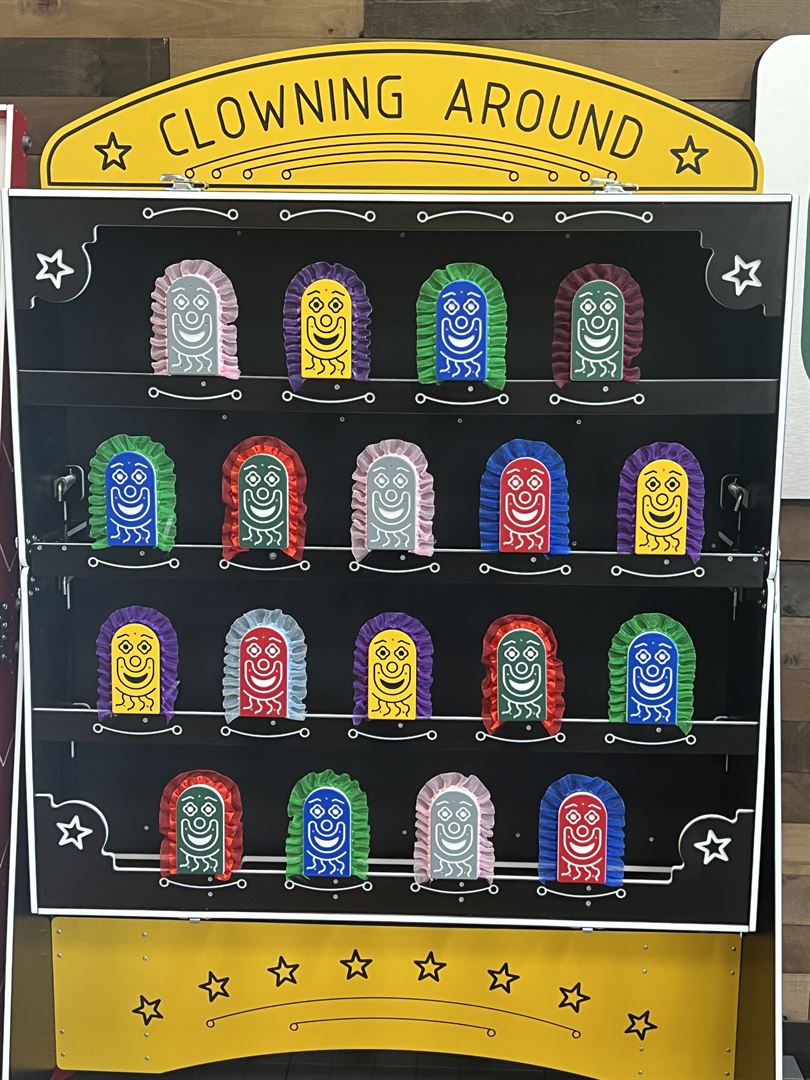 CLOWNING AROUND